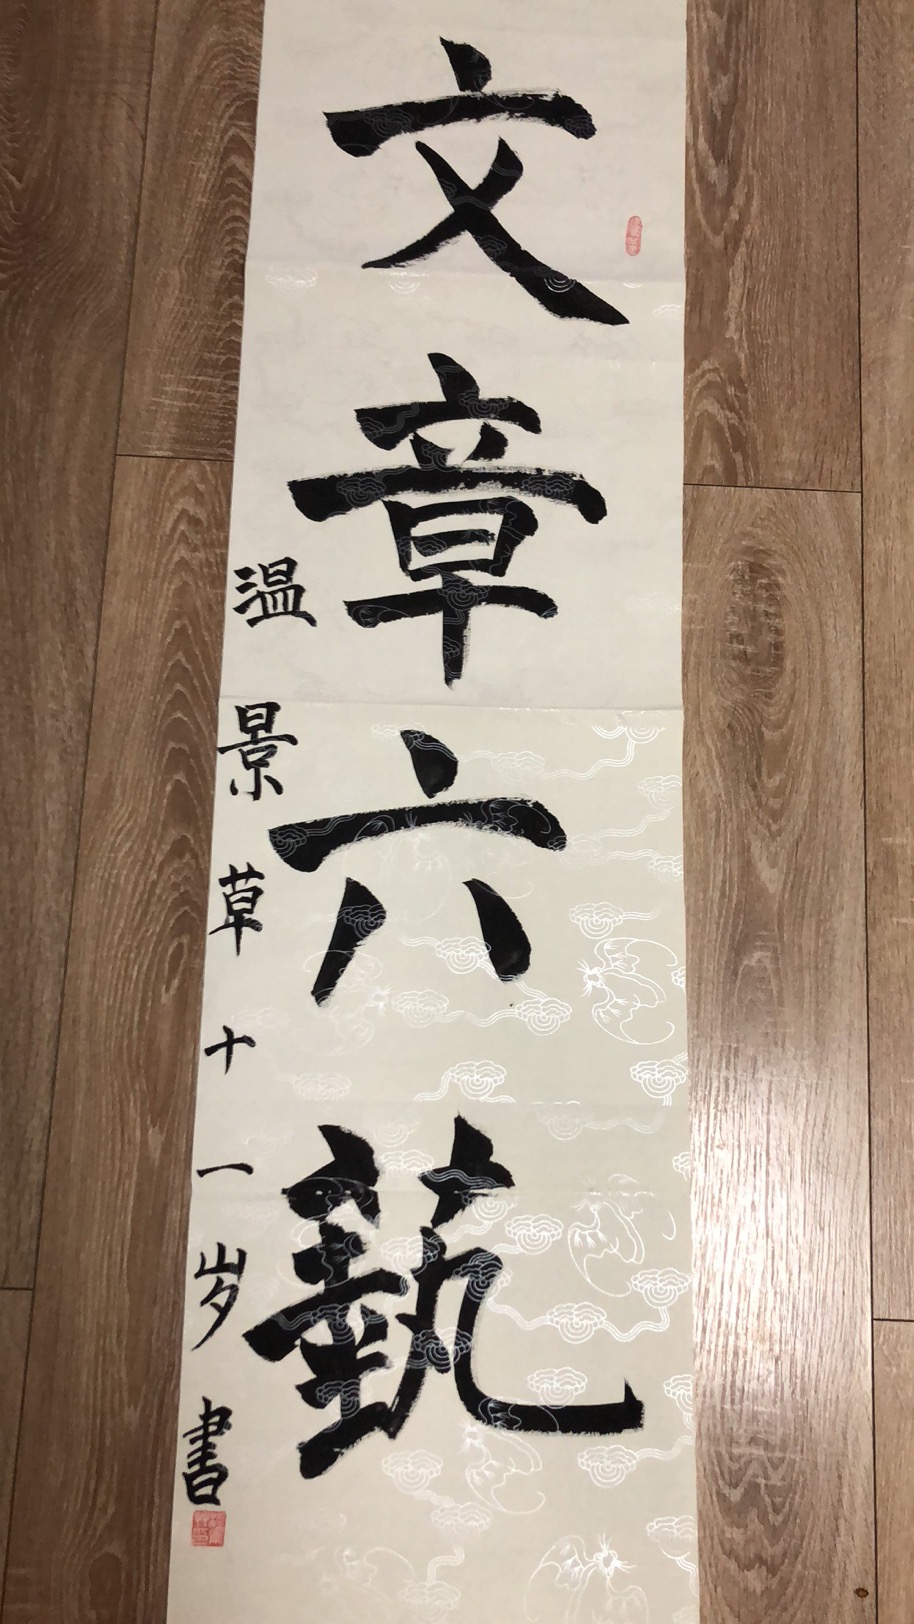 文章六藝
温景草十一岁書